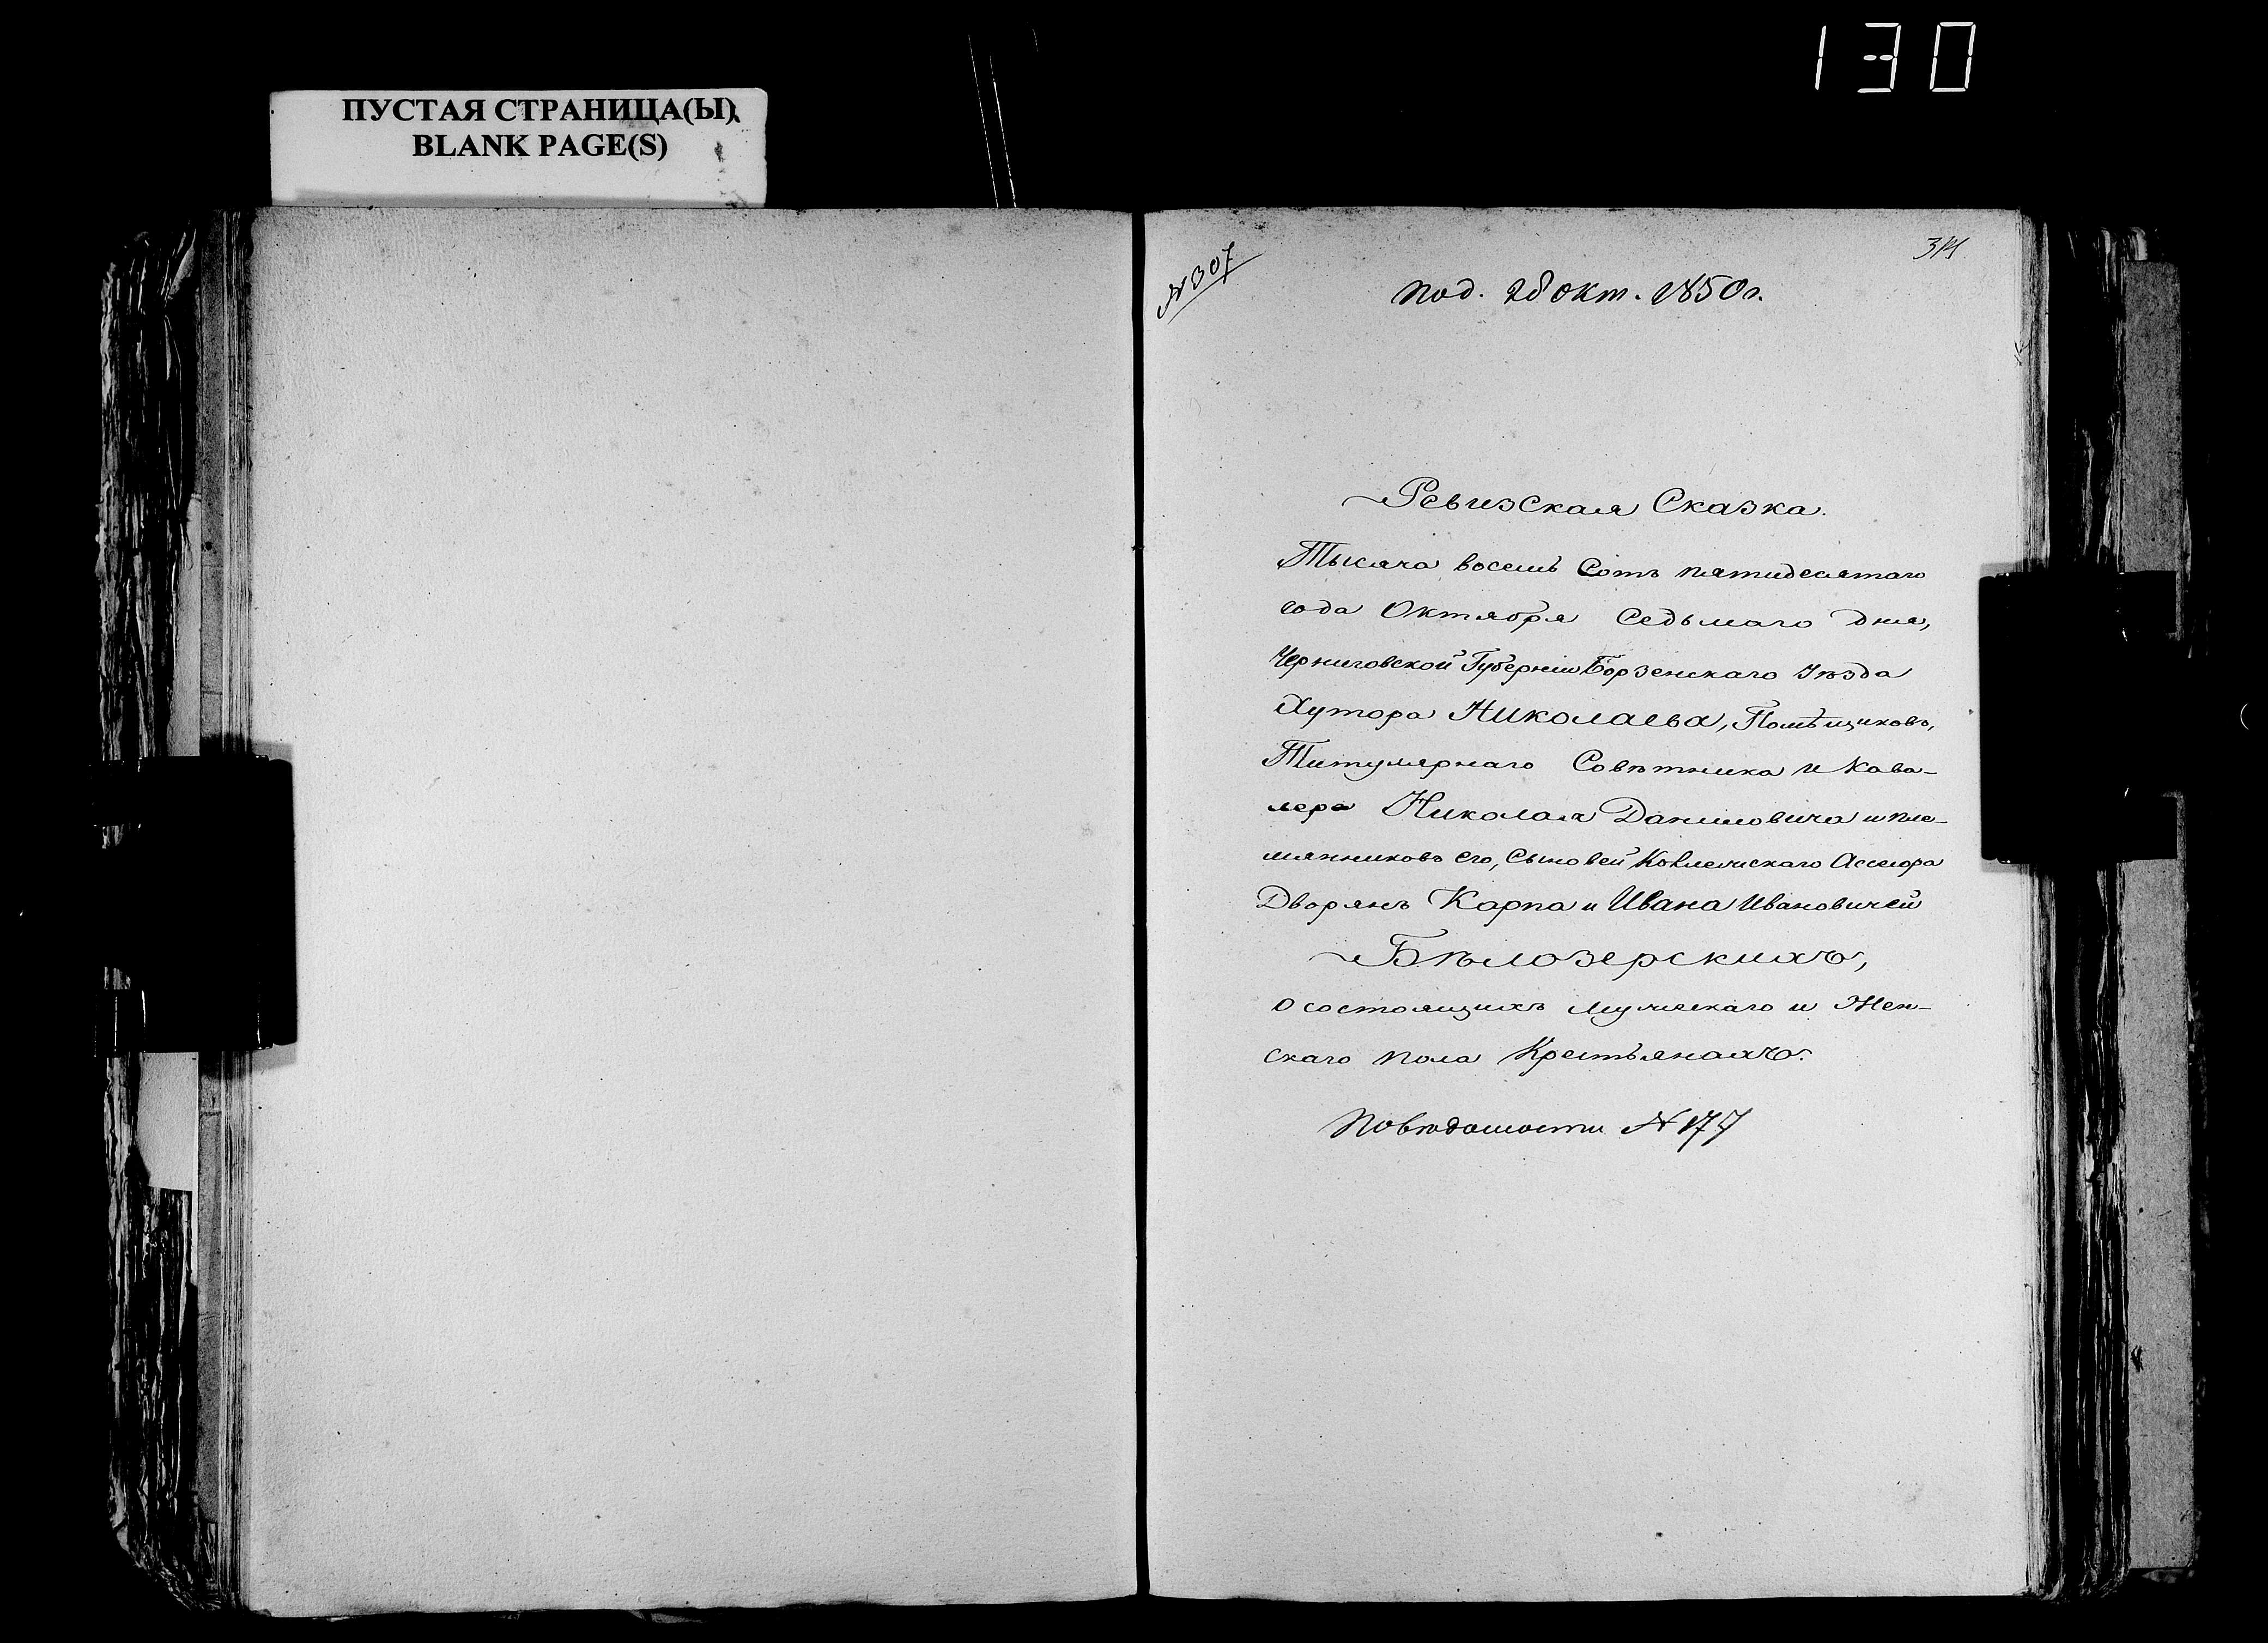 130
ПУСТАЯ СТРАНИЦА(Ы)
BLANK PAGE(S)
№307
под. 28 окт. 1850 г.
Ревизская Сказка.
Тысяча восемь Сотъ пятидесятаго
года Октября Седьмаго дня,
Черниговской Губерніи Борзенскаго Уѣзда
Хутора Николаевка, Помѣщиковъ,
Титулярнаго Совѣтника и Кава-
лера Николая Даниловича и пле-
мянниковъ его, Сыновей Коллежскаго Ассесора
Дворянъ Карпа и Ивана Ивановичей
Бѣлозерскихъ,
о состоящихъ мужескаго и Жен-
скаго пола Крестьянахъ.
По вѣдомости № 177